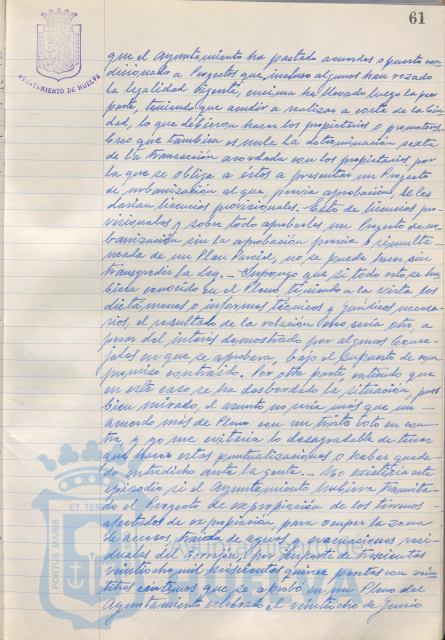 61
AYUNTAMIENTO DE HUELVA
que el Ayuntamiento ha pactado acuerdos o puesto con-
dicionado a Proyectos que, incluso algunos han rozado
la legalidad vigente, encima ha llevado luego la peor
parte, teniendo que acudir a realizar a costa de la ciu-
dad, lo que debieron hacer los propietarios o promotores.
Creo que tambien es nula la determinación sexta
de la transacción acordada con los propietarios por
la que se obliga a éstos a presentar un Proyecto
de urbanización al que, previa aprobación, se les
darian licencias provisionales. Esto de licencias pro-
visionales y sobre todo aprobarles un Proyecto de ur-
banización sin la aprobación previa o simultá-
neada de un Plan Parcial, no se puede hacer sin
transgredir la Ley. - Supongo que si todo esto se hu-
biera conocido en el Pleno teniendo a la vista los
dictámenes o informes técnicos y jurídicos necesa-
rios, el resultado de la votación otro sería, a
pesar del interés demostrado por algunos Conce-
jales en que se aprobara, bajo el supuesto de com-
promiso contraido. Por otra parte, entiendo que
en este caso se ha desbordado la situación, pues
bien mirado, el asunto no sería más que un
acuerdo más de Pleno con un voto en con-
tra, y yo me evitaría lo desagradable de tener
que hacer estas puntualizaciones o haber queda-
do en entredicho ante la gente. - No existiría este
episodio, si el Ayuntamiento hubiera tramita-
do el Proyecto de expropiación de los terrenos
afectados de expropiación, para ocupar la zona
de accesos, traida de aguas y evacuaciones resi-
duales del Torrejón, por importe de trescientas
veintiocho mil seiscientas quince pesetas con vein-
titres centimos que se aprobó en un Pleno del
Ayuntamiento celebrado el veintiocho de Junio
PORTUS MARIS
ET TER
HUELVA